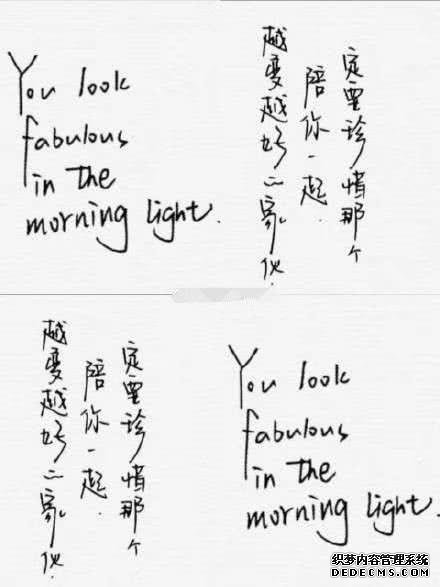 You look
fabulous
in the
morning light.
定要珍惜那个
陪你一起.
越变越好的家伙.
定要珍惜那个
陪你一起.
越变越好的家伙.
You look
fabulous
in the
morning light.
织梦内容管理系统
DEDECMS.COM